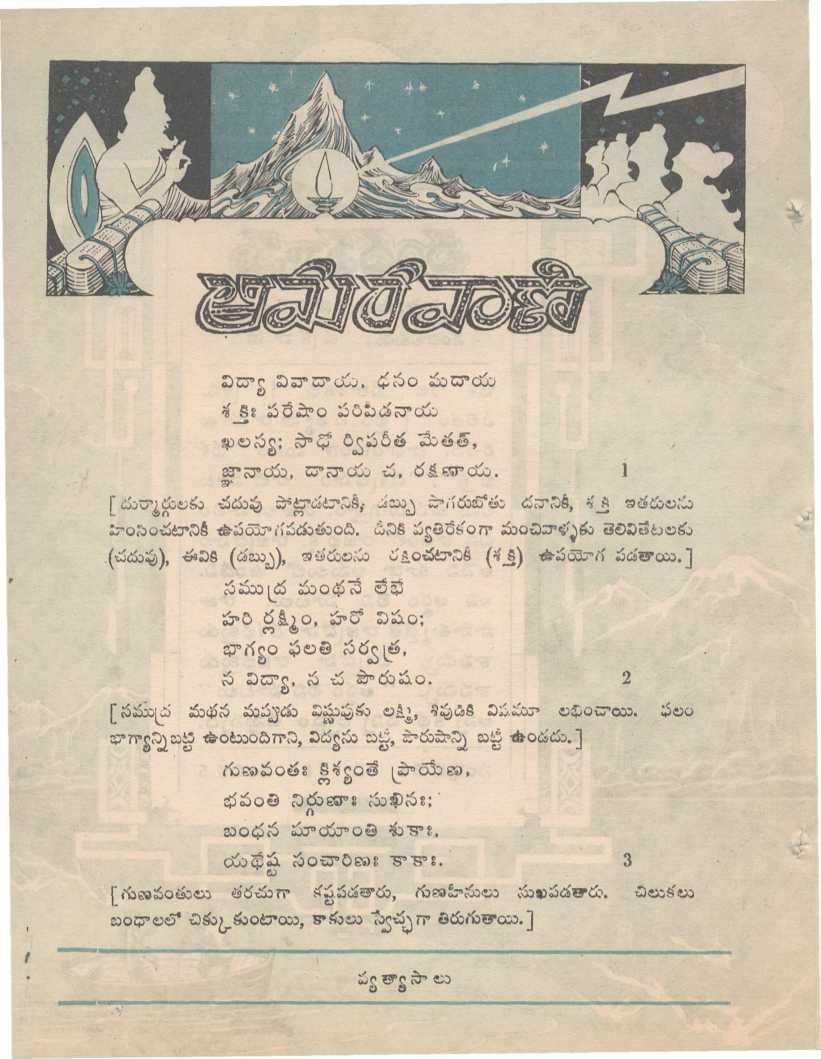 అమరవాణి
విద్యా వివాదాయ, ధనం మదాయ
శక్తిః పరేషాం పరిపీడనాయ
ఖలస్య; సాధో ర్విపరీత మేతత్,
జ్ఞానాయ, దానాయ చ, రక్షణాయ. 1
[దుర్మార్గులకు చదువు పోట్లాడటానికీ, డబ్బు పొగరుబోతు దనానికీ, శక్తి ఇతరులను
హింసించటానికీ ఉపయోగపడుతుంది. దీనికి వ్యతిరేకంగా మంచివాళ్ళకు తెలివితేటలకు
(చదువు), ఈవికి (డబ్బు), ఇతరులను రక్షించటానికీ (శక్తి) ఉపయోగ పడతాయి.]
సముద్ర మంథనే లేభే
హరి ర్లక్ష్మీం, హరో విషం;
భాగ్యం ఫలతి సర్వత్ర,
న విద్యా, న చ పౌరుషం. 2
[సముద్ర మథన మప్పుడు విష్ణువుకు లక్ష్మి, శివుడికి విషమూ లభించాయి. ఫలం
భాగ్యాన్నిబట్టి ఉంటుందిగాని, విద్యను బట్టీ, పౌరుషాన్ని బట్టీ ఉండదు.]
గుణవంతః క్లిశ్యంతే ప్రాయేణ,
భవంతి నిర్గుణాః సుఖినః;
బంధన మాయాంతి శుకాః,
యథేష్ట సంచారిణః కాకాః. 3
[గుణవంతులు తరచుగా కష్టపడతారు, గుణహీనులు సుఖపడతారు. చిలుకలు
బంధాలలో చిక్కుకుంటాయి, కాకులు స్వేచ్ఛగా తిరుగుతాయి.]
వ్యత్యాసాలు